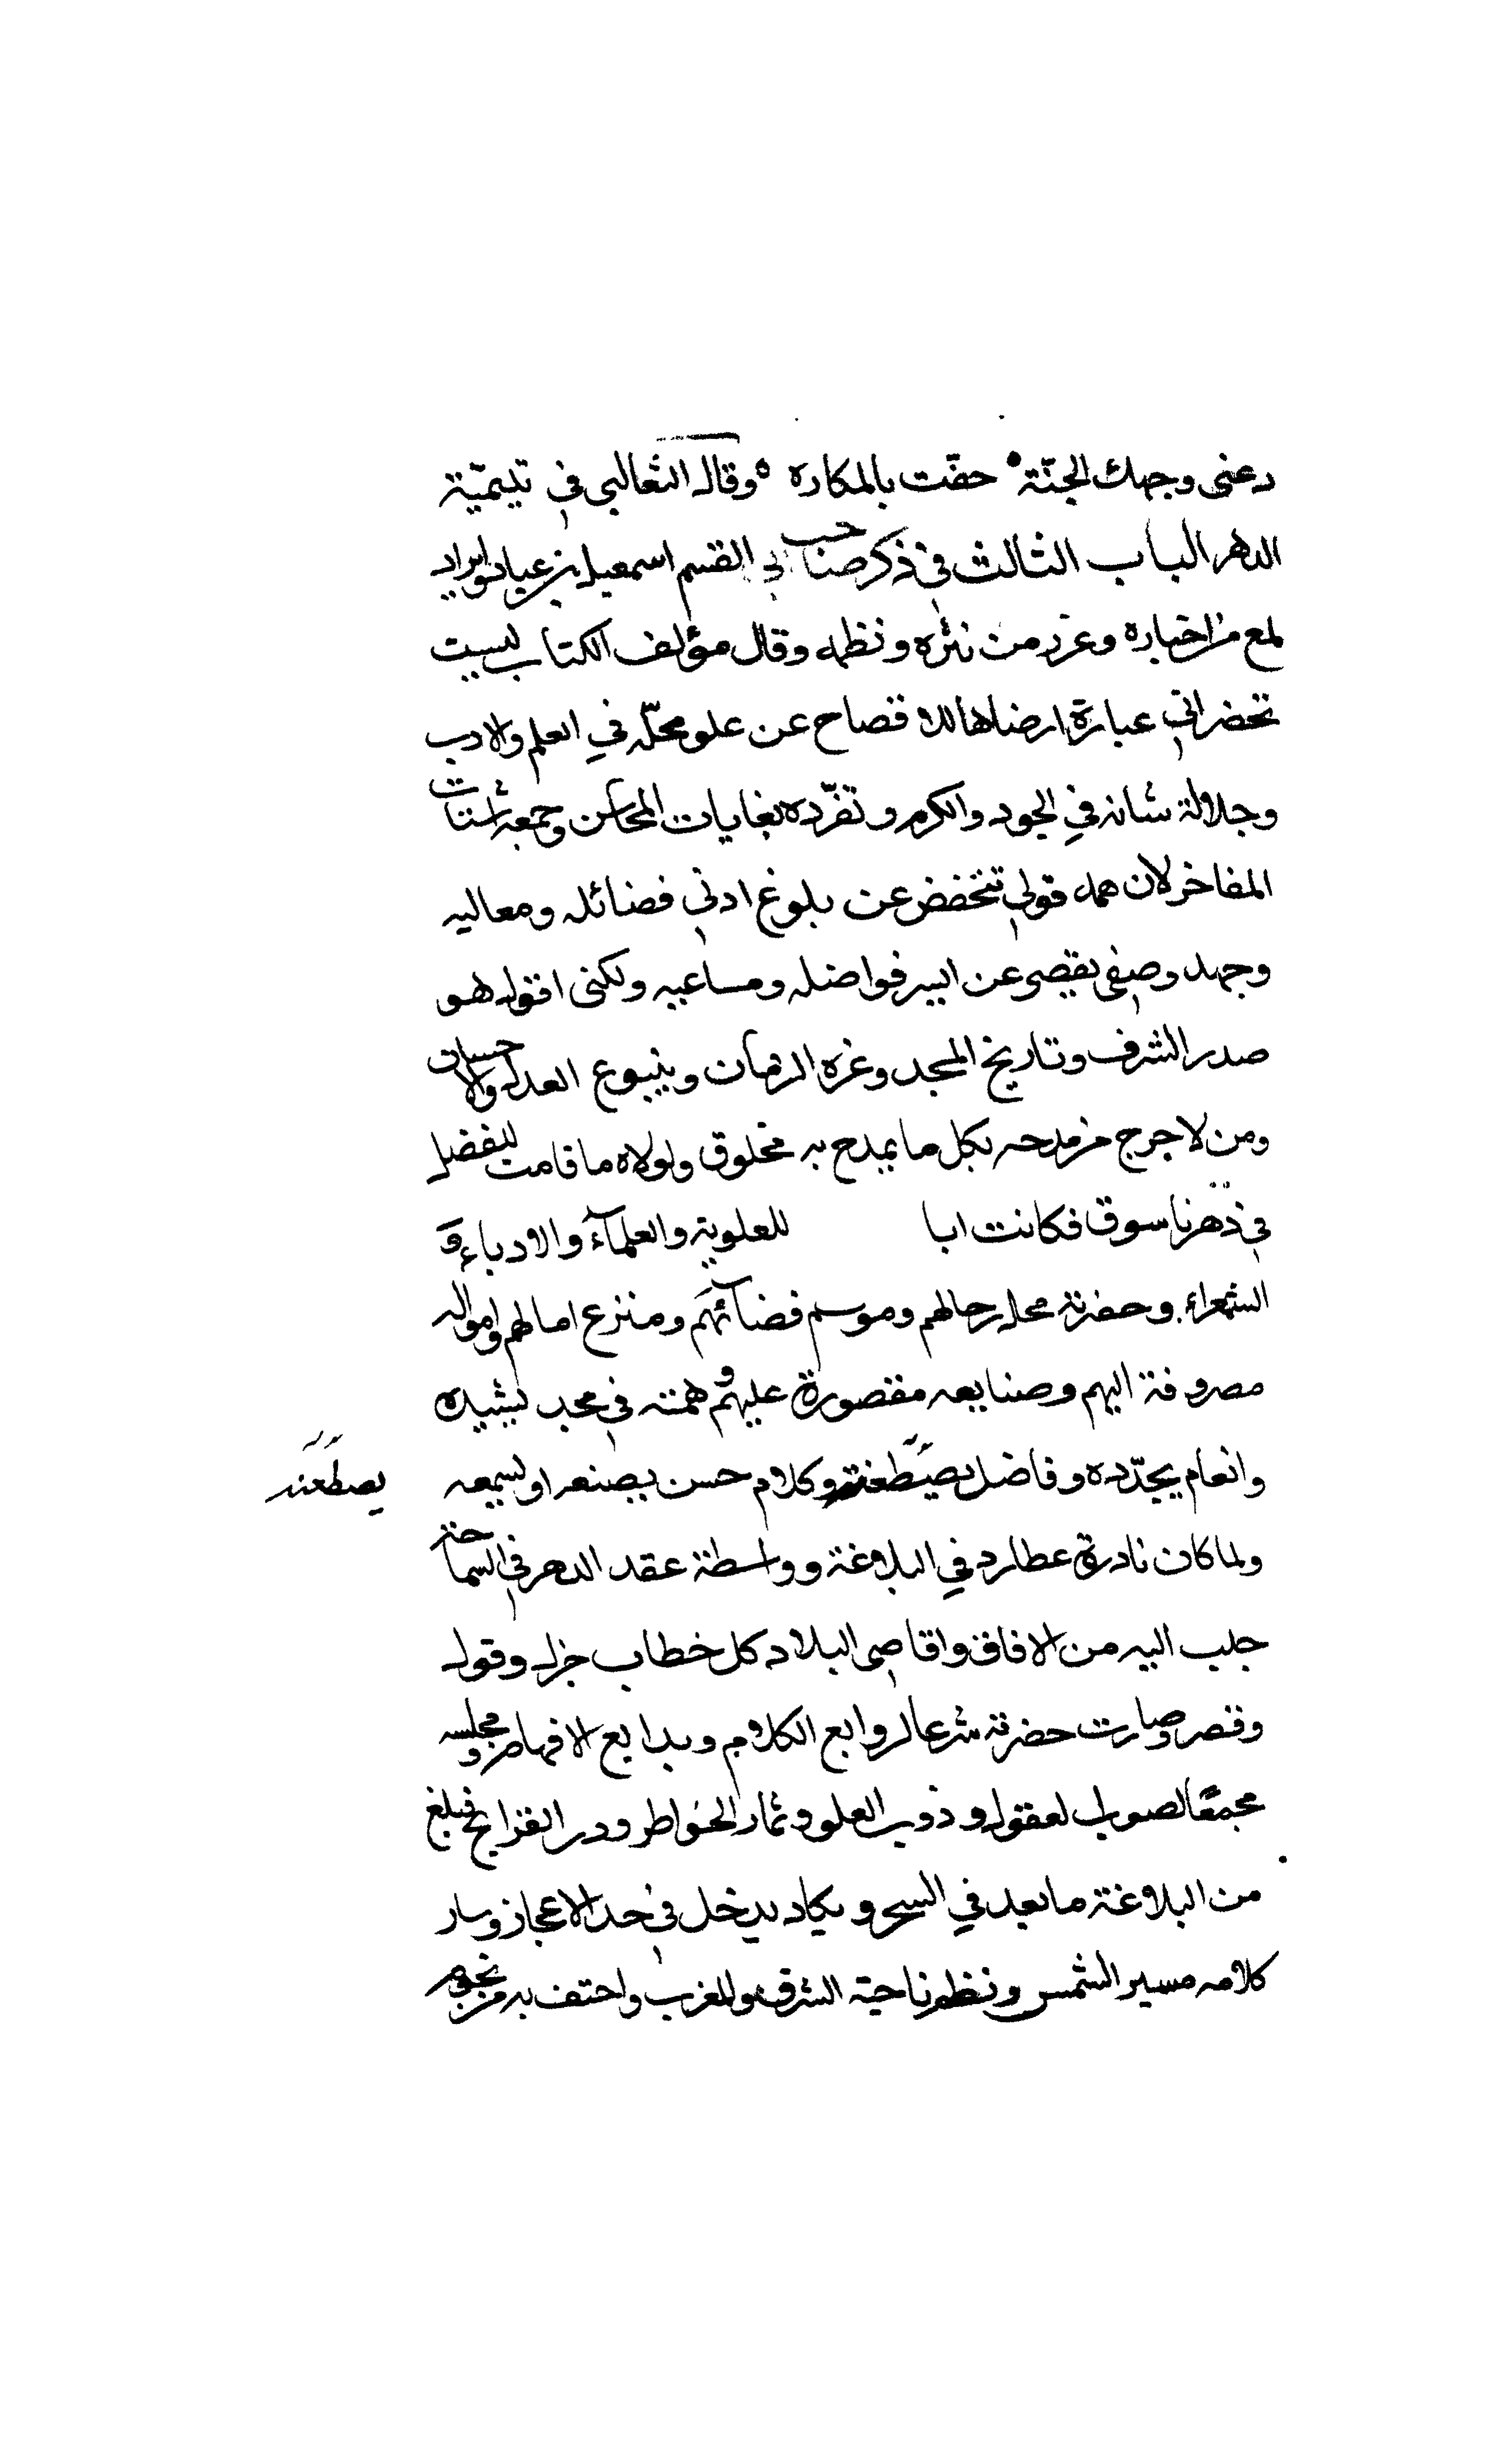 دعنى وجهك الجنّة حفّت بالمكاره وقال الثعالبي في تيتميّة
الدهر الباب الثالث في ذكر صاحب ابي القسم اسمعيل بن عباد وايراد
لمع من اخباره وغرر من نثره ونظمه وقال مؤلف الكتاب ليست
تحضراني عبارة ارضاها للافصاح عن علو محلّه في العلم والادب
وجلالة شانه في الجود والكرم وتفرّده بغايات المحاسن وجمعه اشتات
المفاخر لان همه قولي تنخفض عن بلوغ ادنى فضائله ومعاليه
وجهد وصفى يقصى عن ايسر فواضله ومساعيه ولكنى اقول هو
صدر الشرف وتاريخ المجد وغره الزمان وينبوع العدل والاحسان
ومن لا حرج من مدحه بكل ما يمدح به مخلوق ولولاه ما قامت للفضل
في دهرنا سوق فكانت ابا للعلوية والعلمآء والادباء و
الشعراء وحضرته محل رحالهم وموسم فضآئلهم ومنزع امالهم وامواله
مصروفة اليهم وصنايعه مقصورة عليهم وهمته في مجد يشيده
وانعام يجدّده وفاضل يصطغته وكلام حسن يصنعه او يسمعه
يصطعنه
ولما كان نادرة عطارد في البلاغة وواسطة عقد الدهر في السماحة
جلب اليه من الافاق واقاصى البلاد كل خطاب جزل وقول
وقصر وصارت حضرته شرعا لروابع الكلام وبدايع الافهام ومجلسه
مجمعًا لصوب لعقول وذوب العلو وثمار الخواطر ودر القرايح فبلغ
من البلاغة ما يعد في السحر ويكاد يدخل في حد الاعجاز وسار
كلامه مسير الشمس ونظم ناحية الشرق والمغرب واحتف به من نجوم